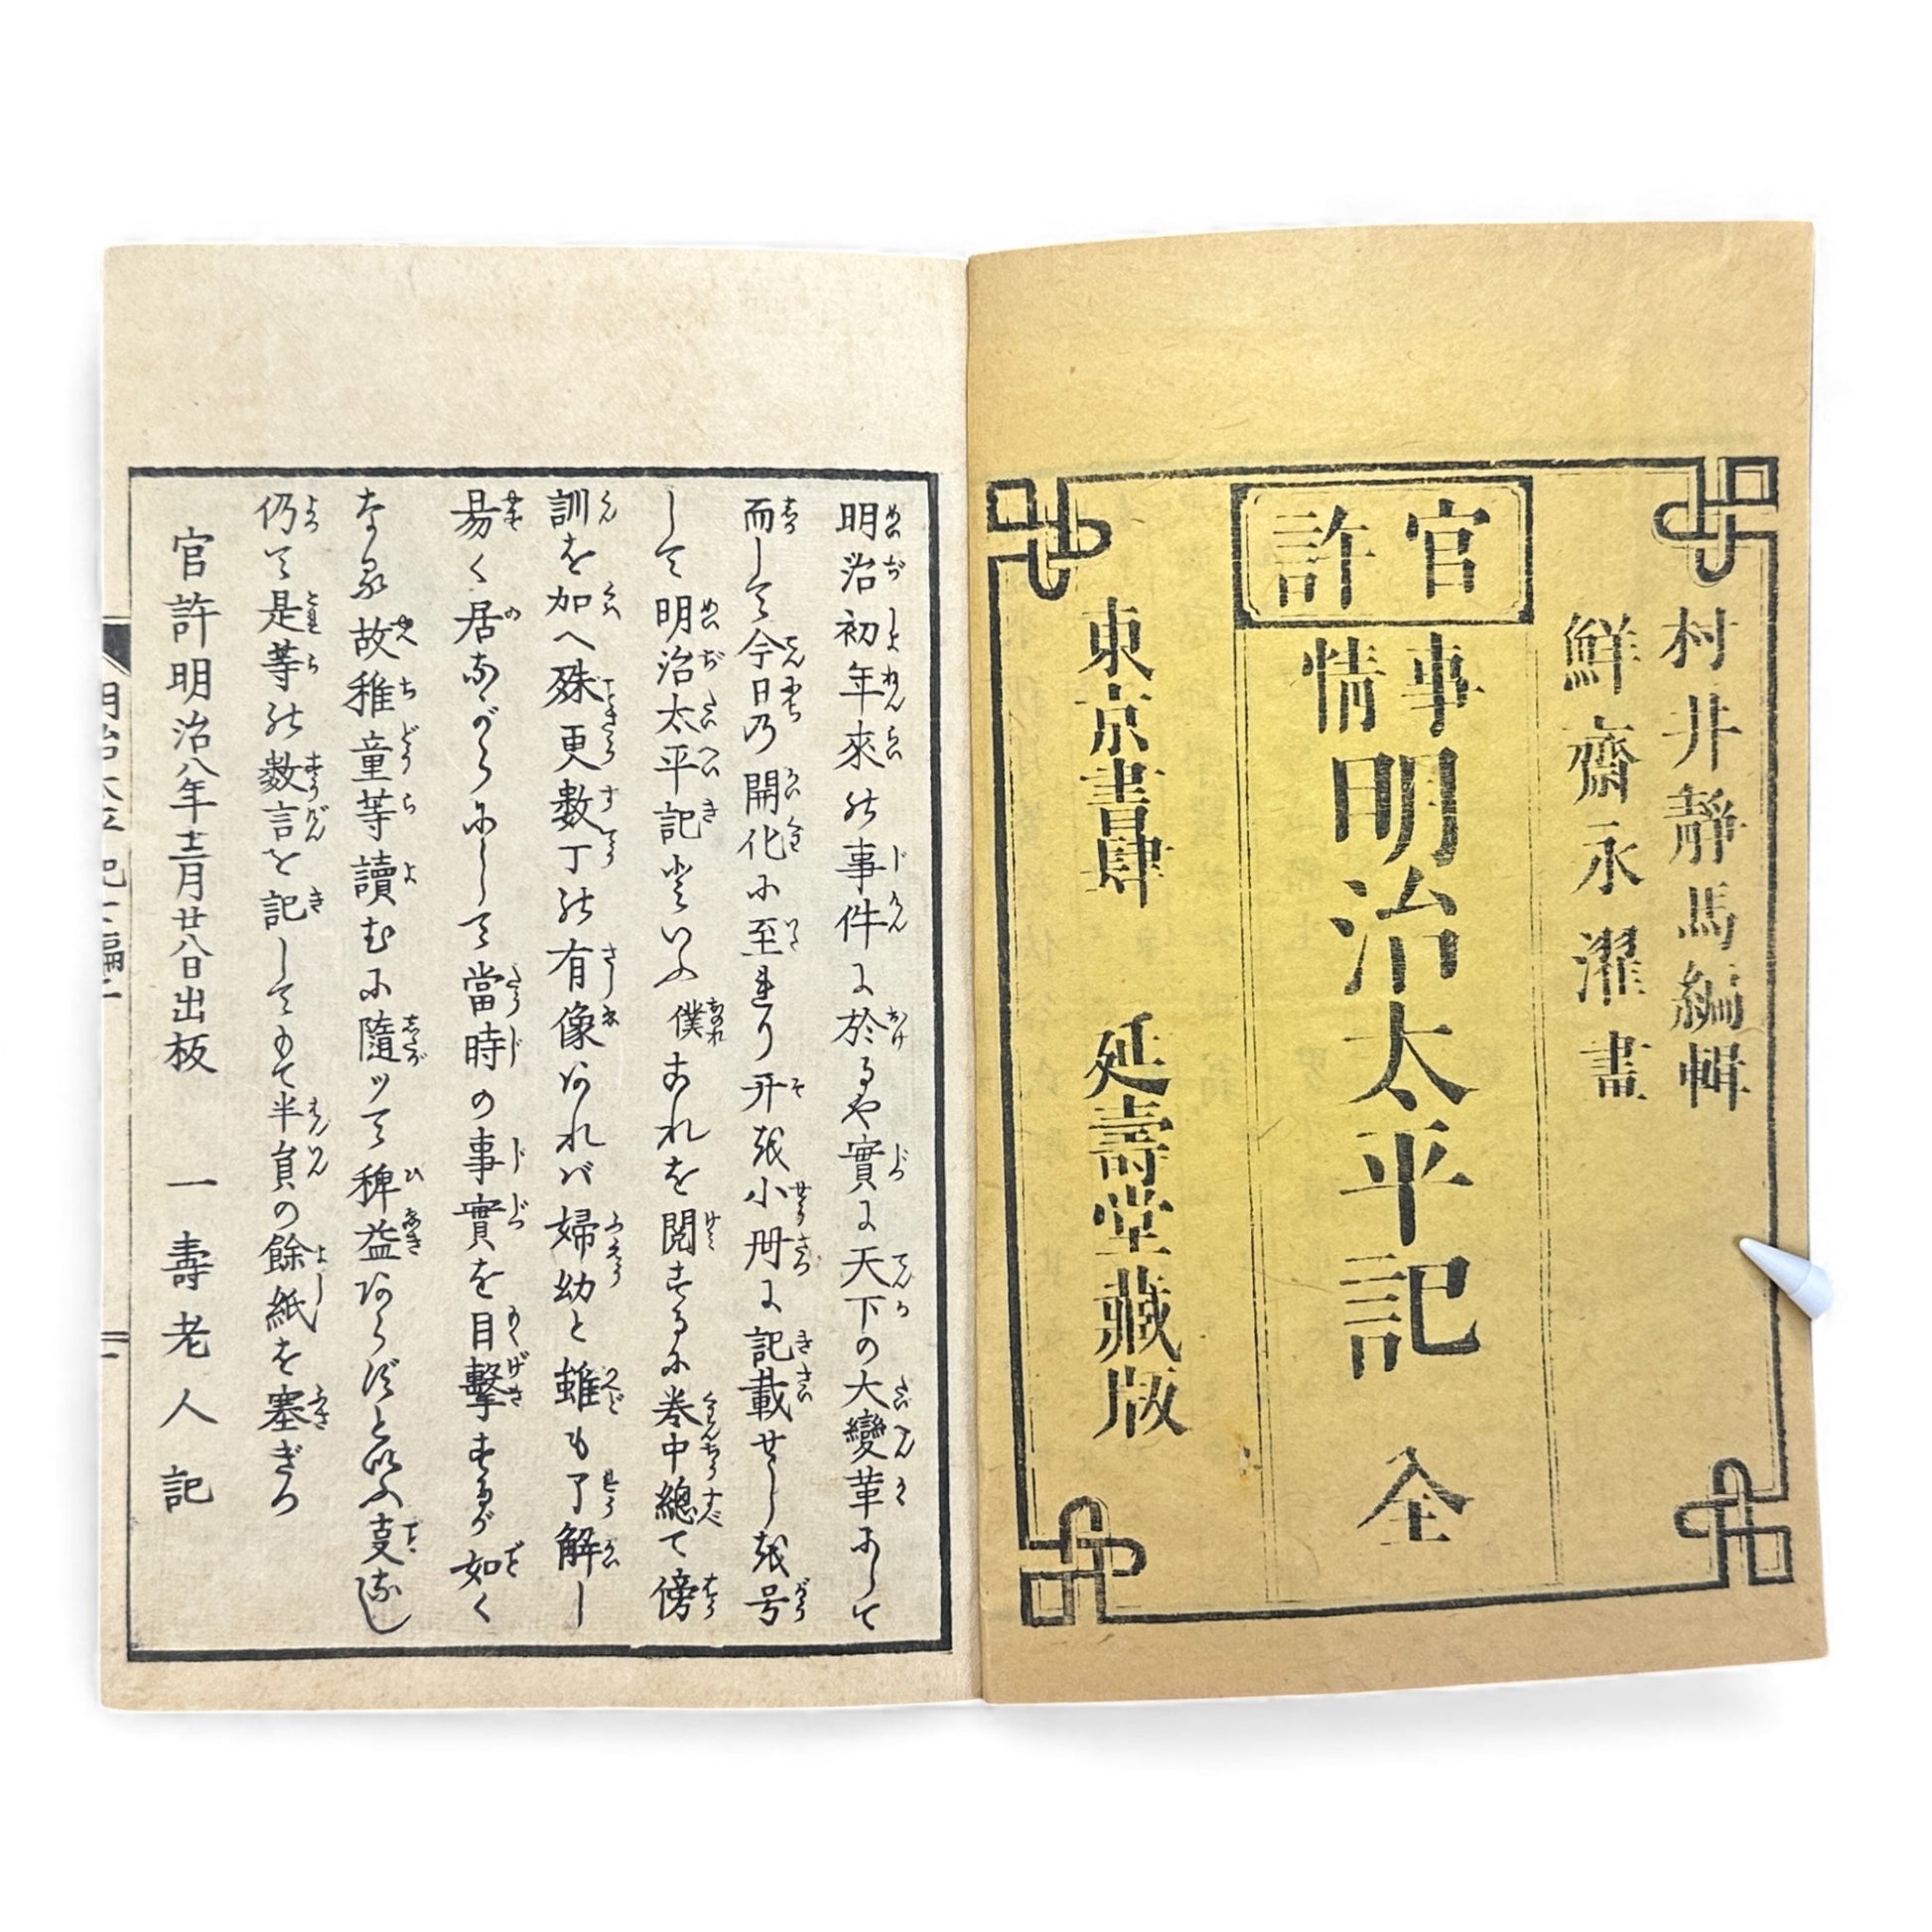 村井靜馬編輯
鮮齋永濯畫
官許
事情
明治太平記 全
東京書肆 延壽堂藏版
明治初年來の事件に於るや實に天下の大變革にして
而して今日乃開化に至れり开を小冊に記載せしを号
して明治太平記といふ僕あれを閲するに巻中總て傍
訓を加へ殊更數丁の有像あれバ婦幼と雖も了解し
易く居ながらにして當時の事實を目撃するが如く
なる故稚童等讀むに隨ツて稗益あらずと以ふ支なし
仍て是等の數言を記してもて半員の餘紙を塞ぎつ
官許明治八年十二月廿八日出板 一壽老人記